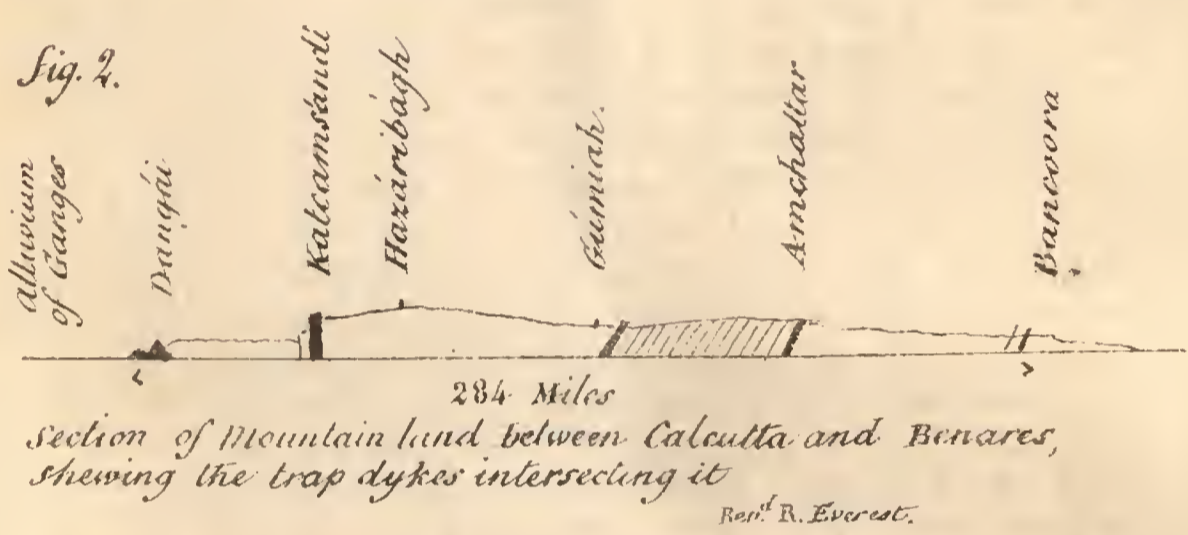 fig. 2.
Alluvium
of Ganges
Dangái
Katcamsandi
Hazáribágh
Gúmiah.
Amchattar
Bancoora
284 Miles
Section of Mountain land between Calcutta and Benares,
shewing the trap dykes intersecting it
Revd. R. Everest.